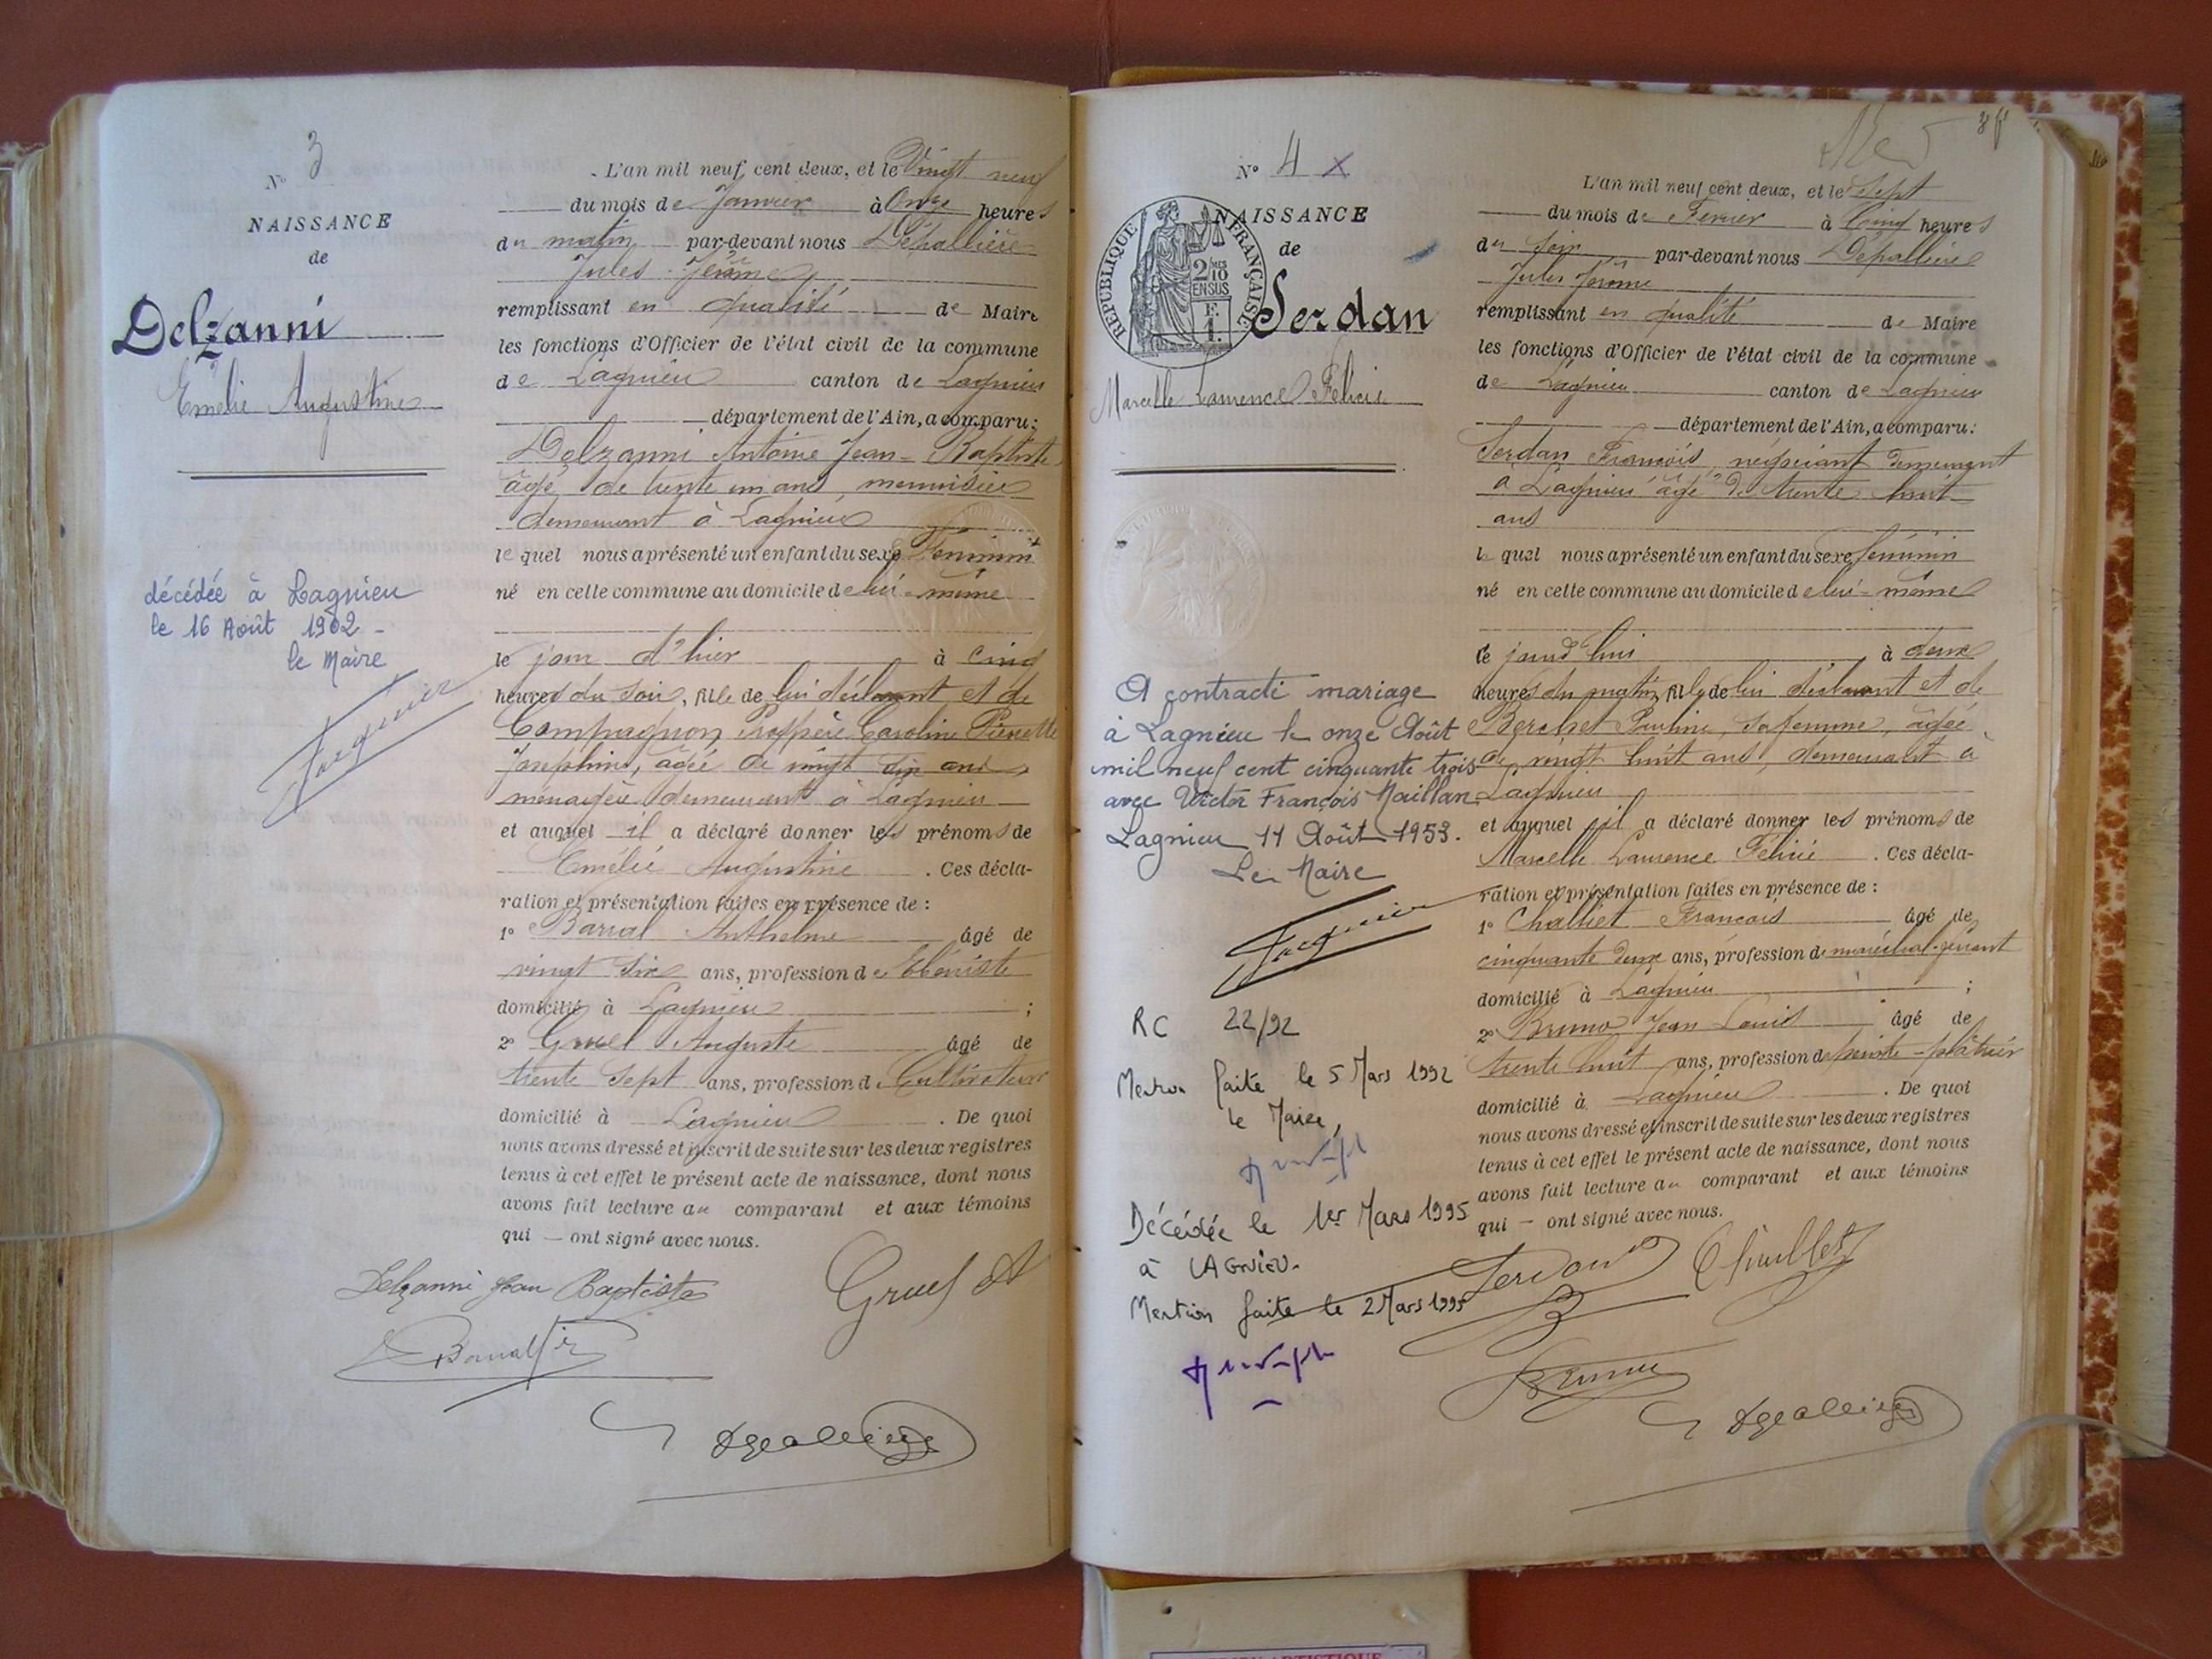 N° 3
NAISSANCE
de
Delzanni
Emélie Augustine
décédée à Lagnieu
le 16 Août 1902 -
le Maire
L'an mil neuf cent deux, et le Vingt neuf
du mois de Janvier à Onze heures
du matin par-devant nous Dépallière
Jules Jérôme
remplissant en qualité de Maire
les fonctions d'Officier de l'état civil de la commune
de Lagnieu canton de Lagnieu
département de l'Ain, a comparu:
Delzanni Antoine Jean-Baptiste,
âgé de trente un ans, menuisier
demeurant à Lagnieu
lequel nous a présenté un enfant du sexe Féminin
né en cette commune au domicile de lui-même
le jour d'hier à cinq
heures du soir, fille de lui déclarant et de
Compagnon Caroline Pierrette
Joséphine, âgée de vingt six ans,
ménagère demeurant à Lagnieu
et auquel il a déclaré donner les prénoms de
Emélie Augustine . Ces décla-
ration et présentation faites en présence de :
1° Barral Anthelme âgé de
vingt six ans, profession de Ebéniste
domicilié à Lagnieu ;
2° Gruel Auguste âgé de
trente sept ans, profession d Cultivateur
domicilié à Lagnieu . De quoi
nous avons dressé et inscrit de suite sur les deux registres
tenus à cet effet le présent acte de naissance, dont nous
avons fait lecture au comparant et aux témoins
qui — ont signé avec nous.
Delzanni Jean Baptiste
Gruel A
Barral
N° 4 X
NAISSANCE
de
RÉPUBLIQUE FRANÇAISE
2/10
EN SUS
F.
1.
Serdan
Marcelle Laurence Félicie
A contracté mariage
à Lagnieu le onze Août
mil neuf cent cinquante trois
avec Victor François Maillan
Lagnieu 11 Août 1953.
Le Maire
RC 22/92
Mention faite le 5 Mars 1992
le Maire,
Décédée le 1er Mars 1995
à LAGNIEU.
Mention faite le 2 Mars 1995
L'an mil neuf cent deux, et le Sept
du mois de Février à Cinq heures
du soir par-devant nous Dépallière
Jules Jérôme
remplissant en qualité de Maire
les fonctions d'Officier de l'état civil de la commune
de Lagnieu canton de Lagnieu
département de l'Ain, a comparu:
Serdan François, négociant demeurant
à Lagnieu âgé de trente huit
ans
lequel nous a présenté un enfant du sexe féminin
né en cette commune au domicile de lui-même
le jourd'hui à deux
heures du matin, fille de lui déclarant et de
Berchet Pauline, sa femme, âgée
de vingt huit ans, demeurant à
Lagnieu
et auquel il a déclaré donner les prénoms de
Marcelle Laurence Félicie . Ces décla-
ration et présentation faites en présence de :
1° Challiet François âgé de
cinquante deux ans, profession de maréchal-ferrant
domicilié à Lagnieu ;
2° Bruno Jean Louis âgé de
trente huit ans, profession de peintre-plâtrier
domicilié à Lagnieu . De quoi
nous avons dressé et inscrit de suite sur les deux registres
tenus à cet effet le présent acte de naissance, dont nous
avons fait lecture au comparant et aux témoins
qui — ont signé avec nous.
Serdan
Bruno